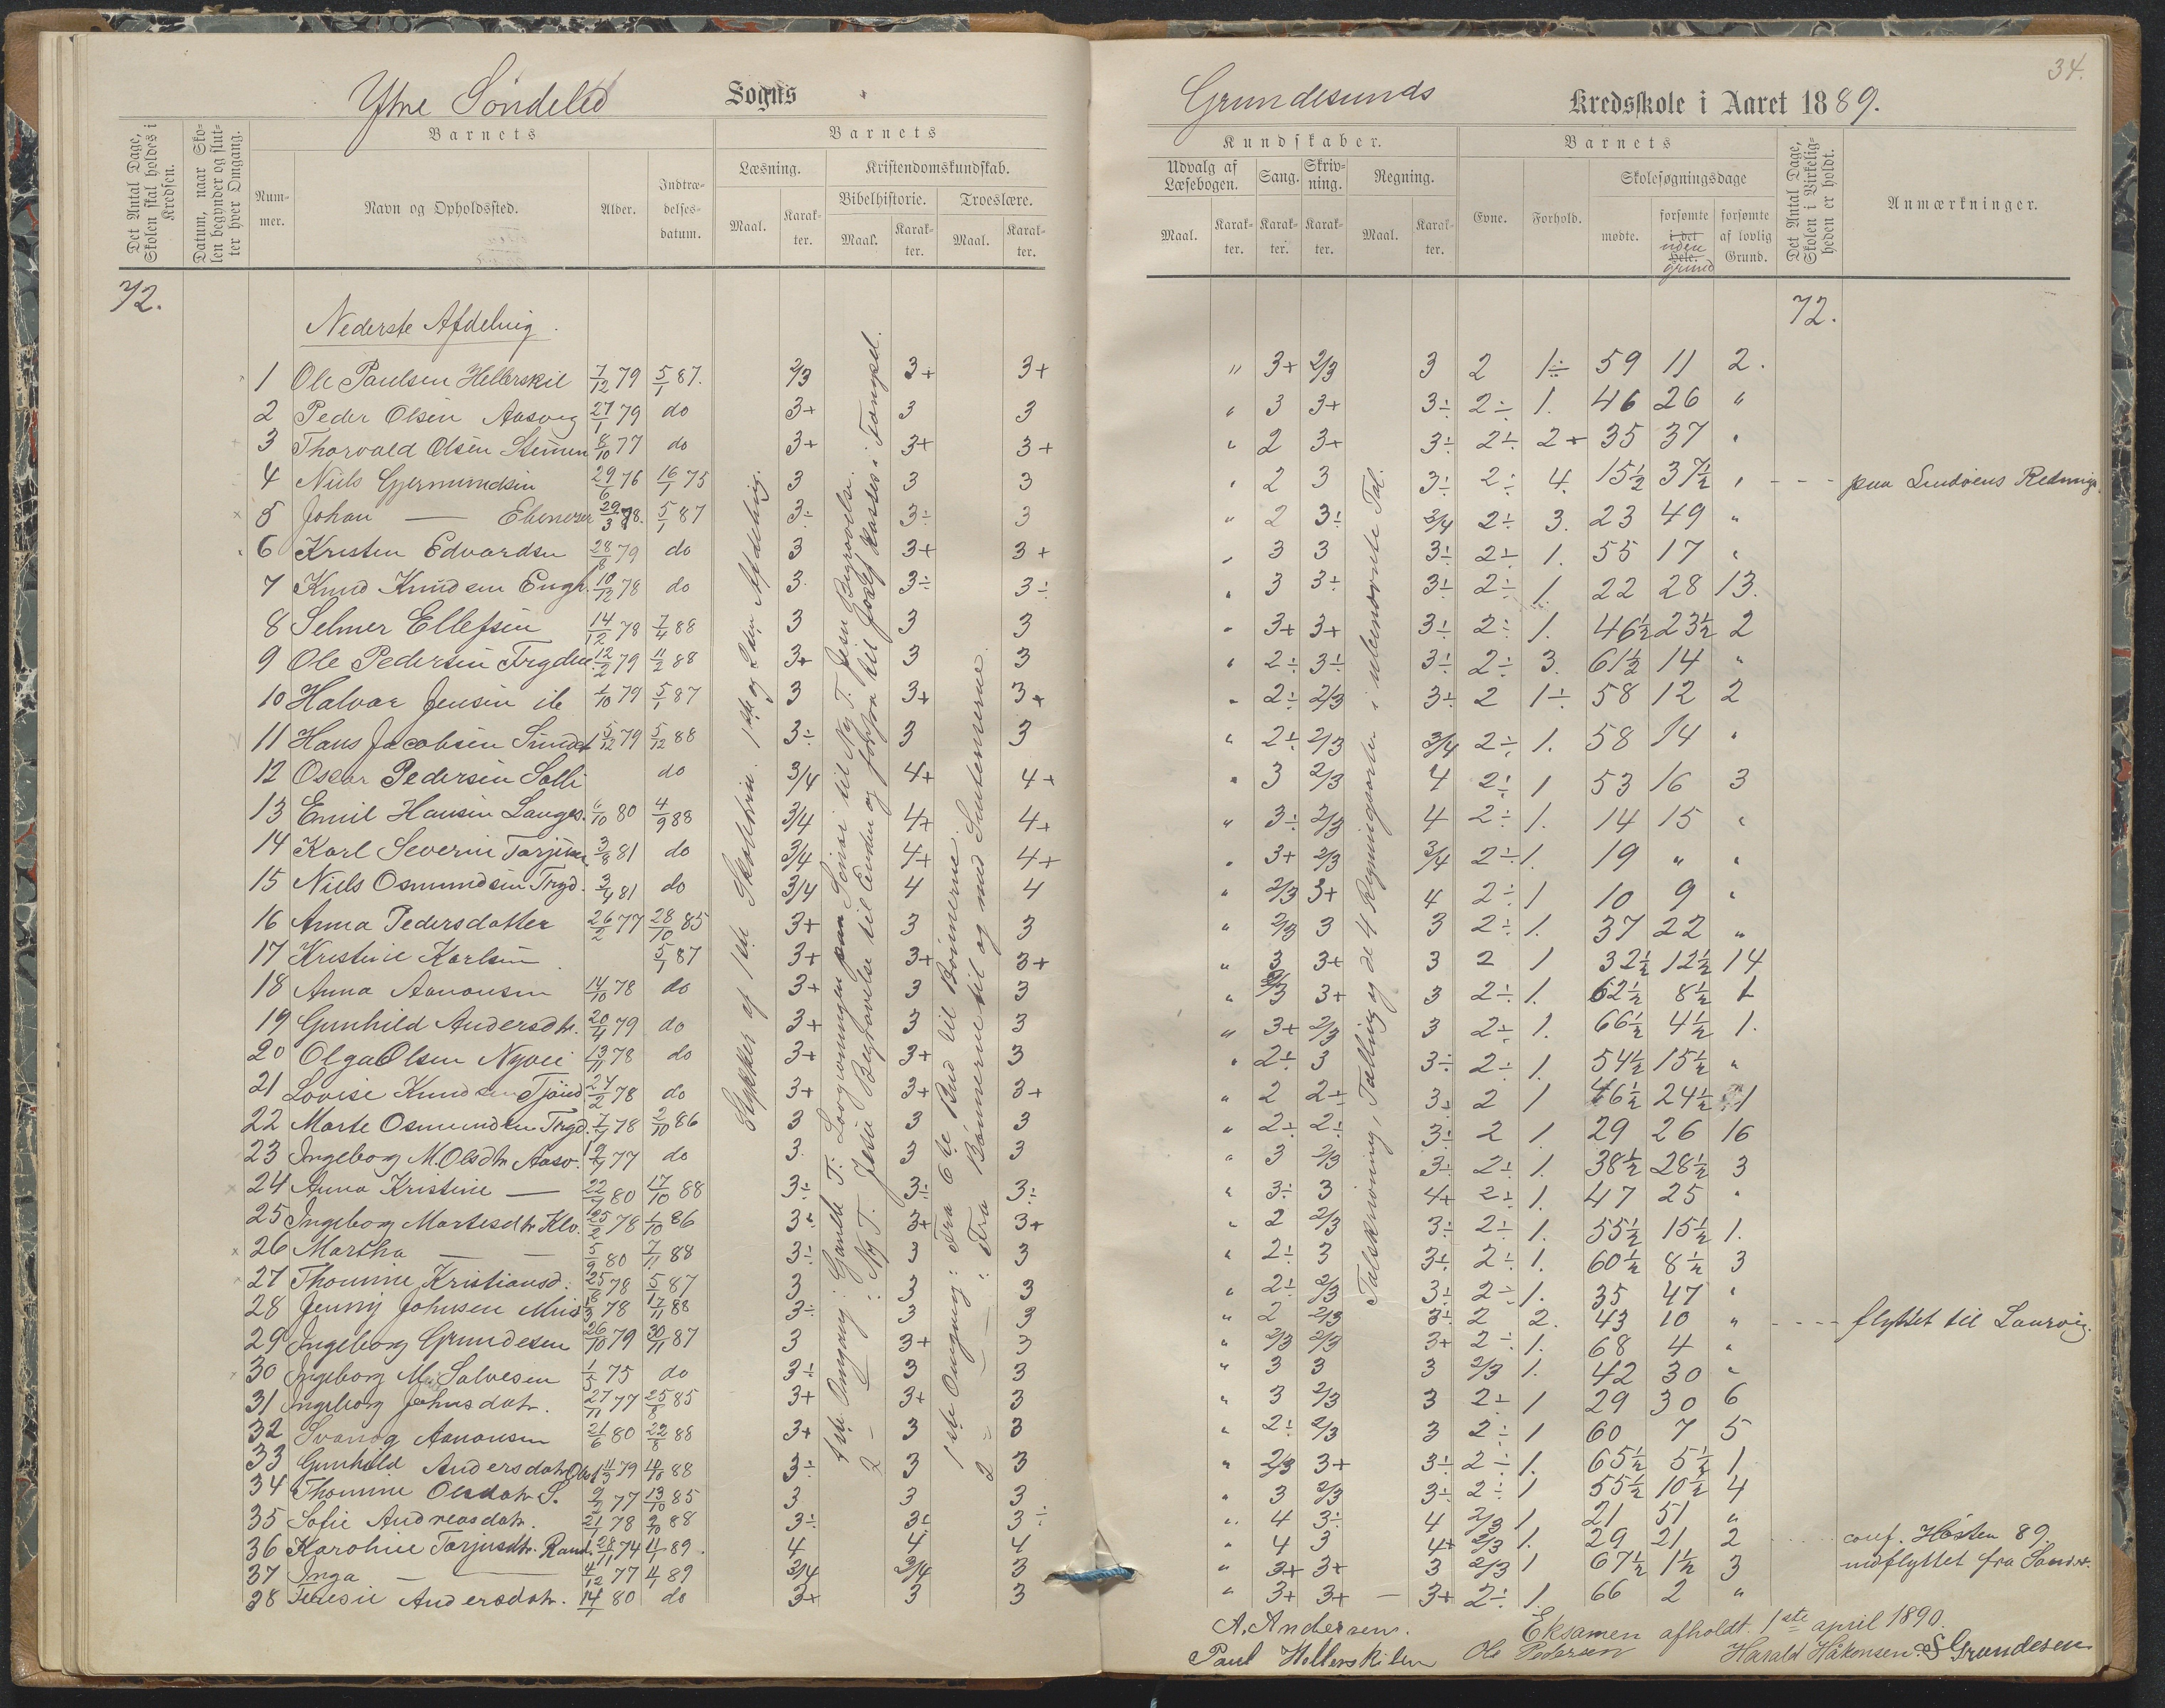 34.
Ytre Söndeled Sogns
Grundesunds Kredsskole i Aaret 1889.
Det Antal Dage, Skolen skal holdes i Kredsen.
Datum, naar Skolen begynder og slutter hver Omgang.
Barnets
Nummer.
Navn og Opholdssted.
Alder.
Indtrædelsesdatum.
Barnets
Læsning.
Maal.
Karakter.
Kristendomskundskab.
Bibelhistorie.
Maal.
Karakter.
Troeslære.
Maal.
Karakter.
Kundskaber.
Udvalg af Læsebogen.
Maal.
Karakter.
Sang.
Karakter.
Skrivning.
Karakter.
Regning.
Maal.
Karakter.
Barnets
Evne.
Forhold.
Skolesøgningsdage
mødte.
forsømte i det Hele. uden grund
forsømte af lovlig Grund.
Det Antal Dage, Skolen i Virkeligheden er holdt.
Anmærkninger.
72.
72.
Nederste Afdeling.
1 Ole Paulsen Hellerskil 7/12 79 5/1 87. 2/3 3+ 3+ " 3+ 2/3 3 2 1÷ 59 11 2.
2 Peder Olsen Aasvig 27/1 79 do 3+ 3 3 " 3 3+ 3÷ 2÷ 1. 46 26 "
3 Thorvald Olsen 8/10 77 do 3+ 3+ 3+ " 2 3+ 3÷ 2÷ 2+ 35 37 "
4 Niels Gjermundsen 29/6 76 16/1 75 3 3 3 " 2 3 3÷ 2÷ 4. 15½ 37½ " paa Lindøens Rednings
5 Johan — Ebeneser 29/3 78. 5/1 87 3÷ 3÷ 3 " 2 3÷ 3/4 2÷ 3. 23 49 "
6 Kristen Edvardsen 28/8 79 do 3 3+ 3+ " 3 3 3÷ 2÷ 1. 55 17 "
7 Knud Knudsen Engh. 10/12 78 do 3. 3÷ 3÷ " 3 3÷ 3÷ 2÷ 1. 22 28 13.
8 Selmer Ellefsen 14/12 78 7/4 88 3 3 3 " 3+ 3+ 3÷ 2÷ 1. 46½ 23½ 2
9 Ole Pedersen Trydn. 12/2 79 11/2 88 3+ 3 3 " 2÷ 3÷ 3÷ 2÷ 3. 61½ 14 "
10 Halvor Jensen ib 1/10 79 5/1 87 3 3+ 3+ " 2÷ 2/3 3÷ 2 1÷ 58 12 2
11 Hans Jacobsen 5/12 79 5/12 88 3÷ 3 3 " 2÷ 2/3 3/4 2÷ 1. 58 14 "
12 Oscar Pedersen Solli do 3/4 4+ 4+ " 3 2/3 4 2÷ 1 53 16 3
13 Emil Hansen Langes. 6/10 80 4/9 88 3/4 4+ 4+ " 3÷ 2/3 4 2÷ 1. 14 15 "
14 Karl Severin Torjusen 3/8 81 do 3/4 4+ 4+ " 3+ 2/3 3/4 2÷ 1. 19 " "
15 Niels Osmundsen Tryd. 3/4 81 do 3/4 4 4 " 2/3 3+ 4 2÷ 1 10 9 "
16 Anna Pedersdatter 26/2 77 28/10 85 3+ 3 3 " 2/3 3 3 2÷ 1. 37 22 "
17 Kristine Karlsen 5/1 87 3+ 3+ 3+ " 3 3+ 3 2 1 32½ 12½ 14
18 Anna Aanonsen 14/10 78 do 3+ 3 3 " 2/3 3+ 3 2÷ 1. 62½ 8½ 1
19 Gunhild Andersdtr. 20/4 79 do 3+ 3 3 " 3+ 2/3 3 2÷ 1. 66½ 4½ 1.
20 Olga Olsen Nyvei 13/11 78 do 3+ 3+ 3 " 2÷ 3 3÷ 2÷ 1. 54½ 15½ "
21 Lovise Knudsen Tjönd 27/2 78 do 3+ 3+ 3+ " 2 2÷ 3÷ 2 1 46½ 24½ 1
22 Marte Osmundsen Tryd. 7/4 78 2/10 86 3 3 3 " 2÷ 2÷ 3÷ 2 1. 29 26 16
23 Ingeborg M Olsdtr Aasv. 77 do 3. 3 3 " 3 2/3 3÷ 2÷ 1. 38½ 28½ 3
24 Anna Kristine — 22/7 80 17/10 88 3÷ 3÷ 3÷ " 3÷ 3 4+ 2÷ 1. 47 25 "
25 Ingeborg Martesdtr Klo. 25/2 78 1/10 86 3÷ 3+ 3+ " 2 2/3 3÷ 2÷ 1. 55½ 15½ 1.
26 Martha — — 5/9 80 7/11 88 3÷ 3 3 " 2÷ 3 3÷ 2÷ 1. 60½ 8½ 3
27 Thomine Kristiansd. 25/8 78 5/1 87 3 3 3 " 2÷ 2/3 3÷ 2÷ 1. 35 47 "
28 Jenny Johnsen 78 17/11 88 3÷ 3 3 " 2 2/3 3÷ 2 2. 43 10 " flyttet til Laurvig.
29 Ingeborg Grundesen 26/10 79 30/11 87 3 3+ 3 " 2/3 2/3 3+ 2÷ 1. 68 4 "
30 Ingeborg M. Salvesen 1/5 75 do 3÷ 3 3 " 3 3 3 2/3 1. 42 30 "
31 Ingeborg Johnsdatr. 27/11 77 25/8 85 3+ 3+ 3 " 3 2/3 3 2÷ 1 29 30 6
32 Svanög Aanonsen 21/6 80 22/8 88 3+ 3 3 " 2÷ 2/3 3 2÷ 1 60 7 5
33 Gunhild Andersdatr 79 88 3÷ 3 3 " 2/3 3+ 3÷ 2÷ 1. 65½ 5½ 1
34 Thomine Olsdatr S. 77 13/10 85 3 3 3 " 3 2/3 3÷ 2÷ 1 55½ 10½ 4
35 Sofie Andreasdatr. 21/1 78 2/10 88 3÷ 3÷ 3÷ " 4 3÷ 4 2/3 1 21 51 "
36 Karoline Torjusdtr. Rand. 28/11 74 4/1 89. 4 4 4 " 4 3 4+ 2/3 1. 29 21 2 conf. Hösten 89.
37 Inga — 4/12 77 4/1 89 3/4 3/4 3 " 3+ 3+ 3 2/3 1 67½ 1½ 3 indflyttet fra
38 Teresie Andersdatr. 14/1 80 do 3+ 3 3 " 3+ 3+ — 3+ 2÷ 1. 66 2 "
Stykker af 1ste Skoletrin. 1ste og 2den Afdeling.
1ste Omgang: Gamle T: Lovgivningen paa Sinai til Ny T. Jesu Begravelse.
2 — : Ny T. Jesu Begravelse til Enden og forfra til Josef kastes i Fængsel.
1ste Omgang: Fra 6te Bud til Bönnerne.
2 — — : Fra Bönnerne til og med Sentenserne.
Talskrivning, Tælling og de 4 Regningsarter i ubenævnte Tal.
Eksamen afholdt 1ste april 1890.
A. Andersen.
Paul Hellerskilen
Ole Pedersen
Harald Håkonsen
S Grundesen